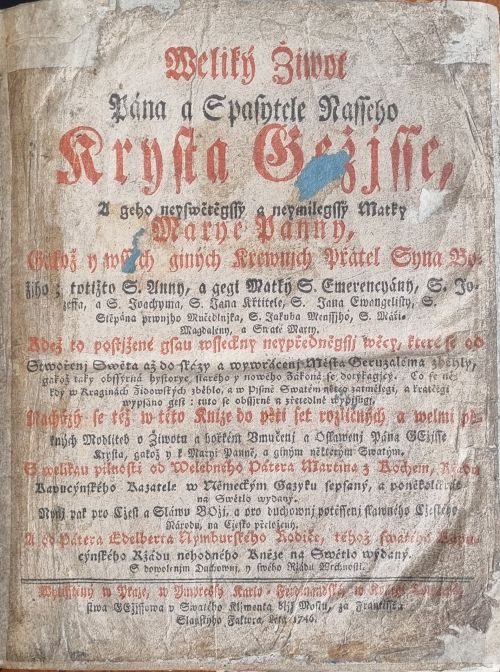 Weliký Žiwot
Pána a Spasytele Nasseho
Krysta Gežjsse,
A geho neyswětěgssý a neymilegssý Matky
Marye Panny,
Gakož y wssech giných Krewnich Přátel Syna Bo-
žjho; totižto S. Anny, a gegj Matký S. Emerencyány, S. Jo-
zeffa, a S. Joachyma, S. Jana Křtitele, S. Jana Ewangelisty, S.
Sstěpána prwnjho Mučedlnjka, S. Jakuba Menssjho, S. Máři-
Magdaleny, a Svaté Marty.
Kdež to postižené gsau wssecKny neypředněgssj wěcy, které se od
Stwořenj Swěta až do skázy a wywrácenj Města Geruzaléma zběhly,
gakož taky obssýrná hystorye, starého y nowého Zákona se dotýkagjcý. Co se ně-
kdy w Kraginách Židowských zběhlo, a w Pjsmě Swatém někco zatmělegi, a kratčegi
wypsáno gest: tuto se obssýrně a zřetedlně wypisuge.
Nacházý se též w této Knize do pěti set rozličných a welmi pě-
kných Modliteb o Žiwotu a hořkém Vmučenj a Oslawenj Pána GEžisse
Krysta, gakož y k Marygi Panně, a giným některým Swatým.
S welikau pilnosti od Welebného Pátera Martina z Kochem, Ržádu
Kapucýnského Kazatele w Německým Gazyku sepsaný, a poněkolikráte
na Swětlo wydaný.
Nynj pak pro Cžest a Sláwu BOžj, a pro duchownj potěssenj slawného Cžeského
Národu, na Cžesko přeložený,
A od Pátera Edelberta Nymburského Rodiče, téhož swatého Kapu-
cýnského Ržádu nehodného Kněze na Swětlo wydaný.
S dowolenjm Duchownj, y swého Ržádu Wrchnosti.
Wytisstěný w Praze, w Ympressý Karlo-Ferdinandské, w Kolegi
stwa GEžjssowa v Swatého Klimenta bljž Mostu, za Frantisska
Slawjtýho Faktora, Léta 1746.